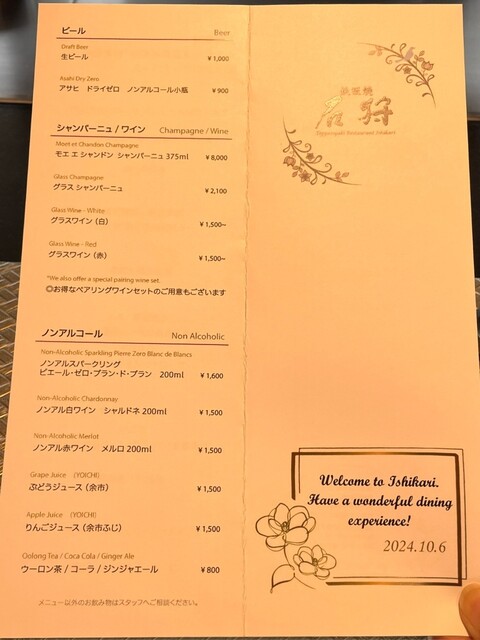 ビール Beer
Draft Beer
生ビール ¥1,000
Asahi Dry Zero
アサヒ ドライゼロ ノンアルコール小瓶 ¥900
シャンパーニュ / ワイン Champagne / Wine
Moët et Chandon Champagne
モエ エ シャンドン シャンパーニュ 375ml ¥8,000
Glass Champagne
グラス シャンパーニュ ¥2,100
Glass Wine - White
グラスワイン (白) ¥1,500~
Glass Wine - Red
グラスワイン (赤) ¥1,500~
*We also offer a special pairing wine set.
◎お得なペアリングワインセットのご用意もございます
ノンアルコール Non Alcoholic
Non-Alcoholic Sparkling Pierre Zero Blanc de Blancs
ノンアルスパークリング
ピエール・ゼロ・ブラン・ド・ブラン 200ml ¥1,600
Non-Alcoholic Chardonnay
ノンアル白ワイン シャルドネ 200ml ¥1,500
Non-Alcoholic Merlot
ノンアル赤ワイン メルロ 200ml ¥1,500
Grape Juice (YOICHI)
ぶどうジュース (余市) ¥1,500
Apple Juice (YOICHI)
りんごジュース (余市ふじ) ¥1,500
Oolong Tea / Coca Cola / Ginger Ale
ウーロン茶 / コーラ / ジンジャエール ¥800
メニュー以外のお飲み物はスタッフへご相談ください。
鉄板焼
石狩
Teppanyaki Restaurant Ishikari
Welcome to Ishikari.
Have a wonderful dining
experience!
2024.10.6